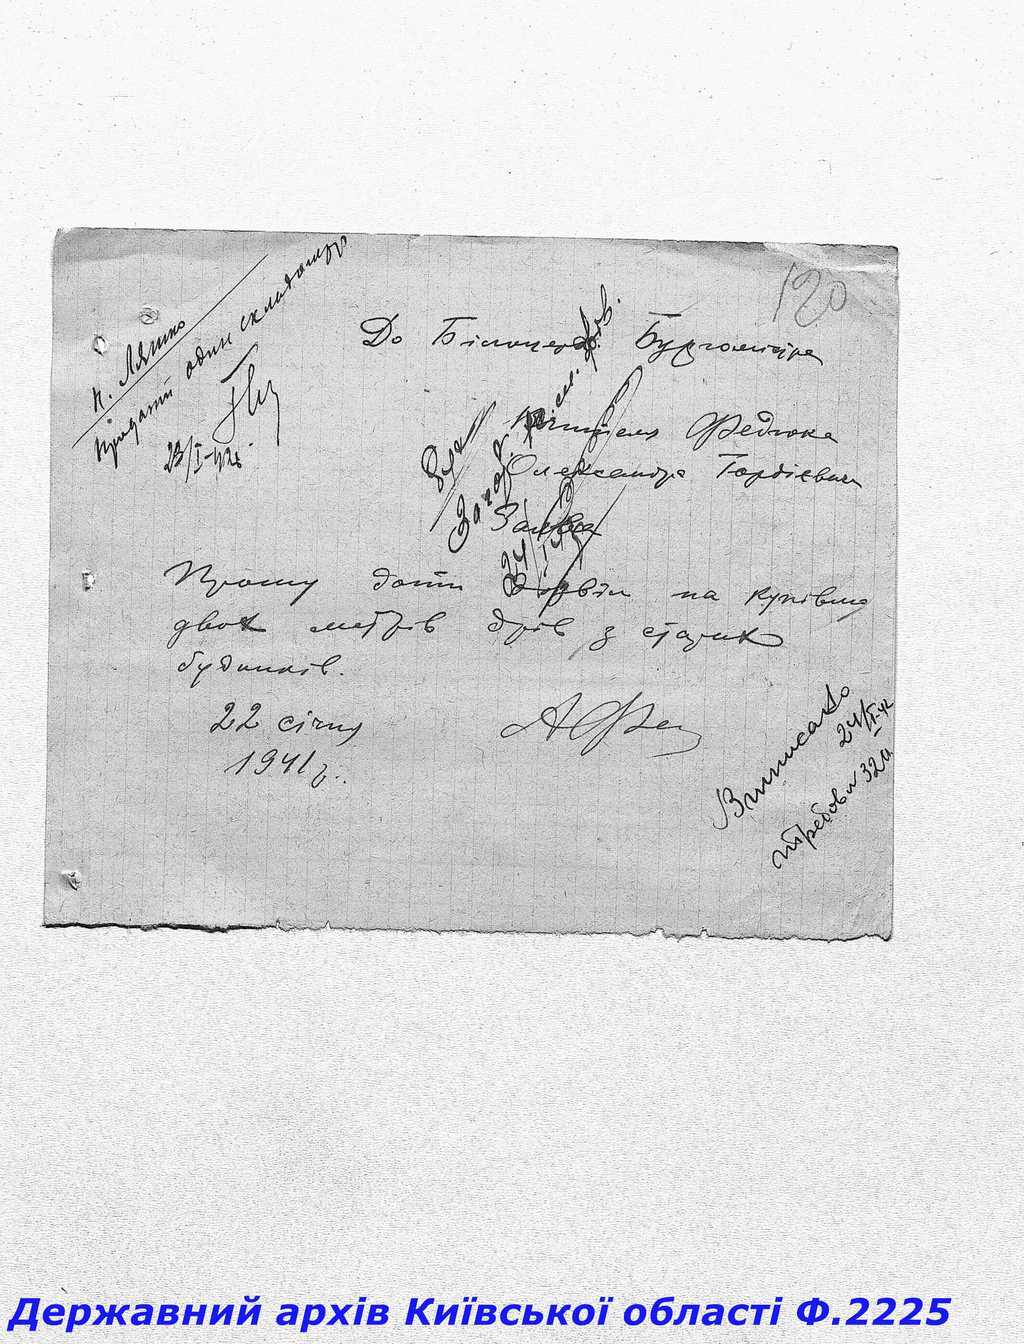 120
п. Ляшко
Продати один складометр
23/I-42
До Білоцерк. Бургомістра
Вчителя Федюка
Олександра Гордієвича
Заява
Прошу дати дозвіл на купівлю
двох метрів дрів з старих
будинків.
22 січня
1941 р.
Виписано
24/I-42
требов. 320
Державний архів Київської області Ф.2225